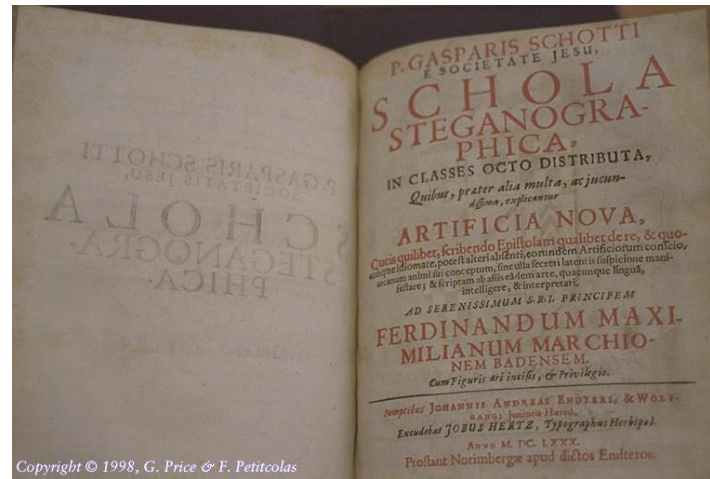 P. GASPARIS SCHOTTI
SOCIETATIS JESU,
SCHOLA
STEGANOGRA-
PHICA.
P. GASPARIS SCHOTTI
E SOCIETATE JESU,
SCHOLA
STEGANOGRA-
PHICA,
IN CLASSES OCTO DISTRIBUTA,
Quibus, præter alia multa, ac jucun-
dissima, explicantur
ARTIFICIA NOVA,
Queis quilibet, scribendo Epistolam qualibet de re, & quo-
cunque idiomate, potest alteri absenti, eorundem Artificiorum conscio,
arcanum animi sui conceptum, sine ulla secreti latentis suspicione mani-
festare; & scriptam ab aliis eadem arte, quacunque linguâ,
intelligere, & interpretari.
AD SERENISSIMUM S.R.I. PRINCIPEM
FERDINANDUM MAXI-
MILIANUM MARCHIO-
NEM BADENSEM.
Cum Figuris æri incisis, & Privilegio.
Sumptibus JOHANNIS ANDREAE ENDTERI, & WOLF-
GANGI Junioris Hæred.
Excudebat JOBUS HERTZ, Typographus Herbipol.
ANNO M. DC. LXXX.
Prostant Norimbergæ apud dictos Endteros.
Copyright © 1998, G. Price & F. Petitcolas